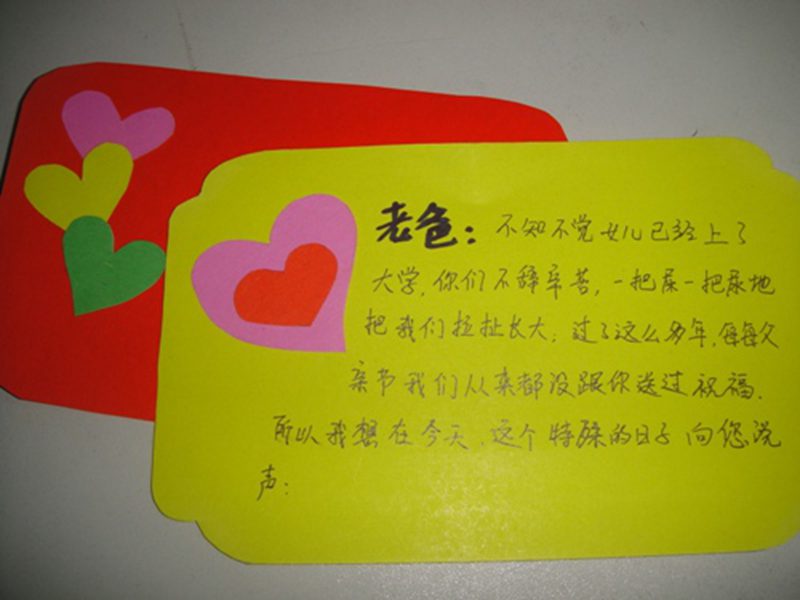 老爸：不知不觉女儿已经上了
大学，你们不辞辛苦，一把屎一把尿地
把我们拉扯长大，过了这么多年，每每父
亲节我们从来都没跟你送过祝福，
所以我想在今天，这个特殊的日子向您说
声：